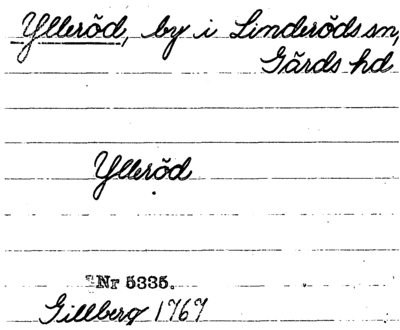 Ylleröd, by i Linderöds sn,
Gärds hd
Ylleröd
Nr 5335.
Gillberg 1767